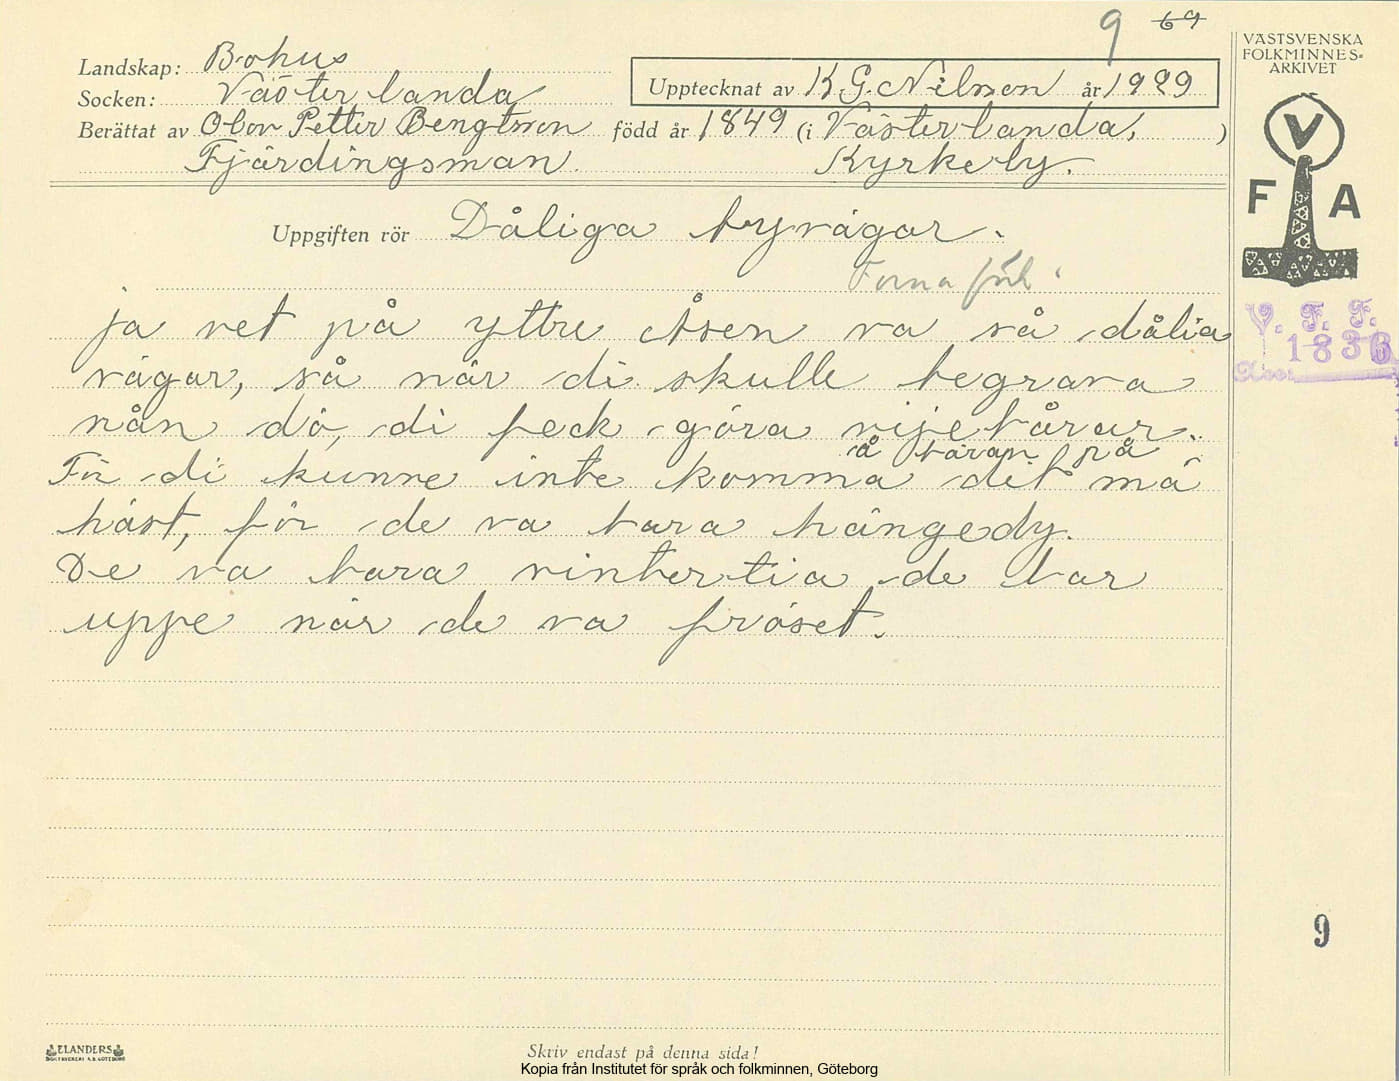 9 69
VÄSTSVENSKA
FOLKMINNES=
ARKIVET
Landskap: Bohus
Socken: Västerlanda
Upptecknat av K.G. Nilsson år 1929
Berättat av Olov Petter Bengtsson född år 1849 (i Västerlanda, )
Fjärdingsman. Kyrkeby.
V F A
Uppgiften rör Dåliga byvägar.
Forna
ja vet på yttre Åsen va så dålia
vägar, så når di skulle begrava
nån dö, di feck göra vijebårar.
å båran på
För di kunne inte komma dit mä
häst, för de va bara hängedy.
De va bara vintertia de bar
uppe når de va fröset.
V. F. F.
1836
9
ELANDERS
BOKTRYCKERI A.B. GÖTEBORG
Skriv endast på denna sida!
Kopia från Institutet för språk och folkminnen, Göteborg